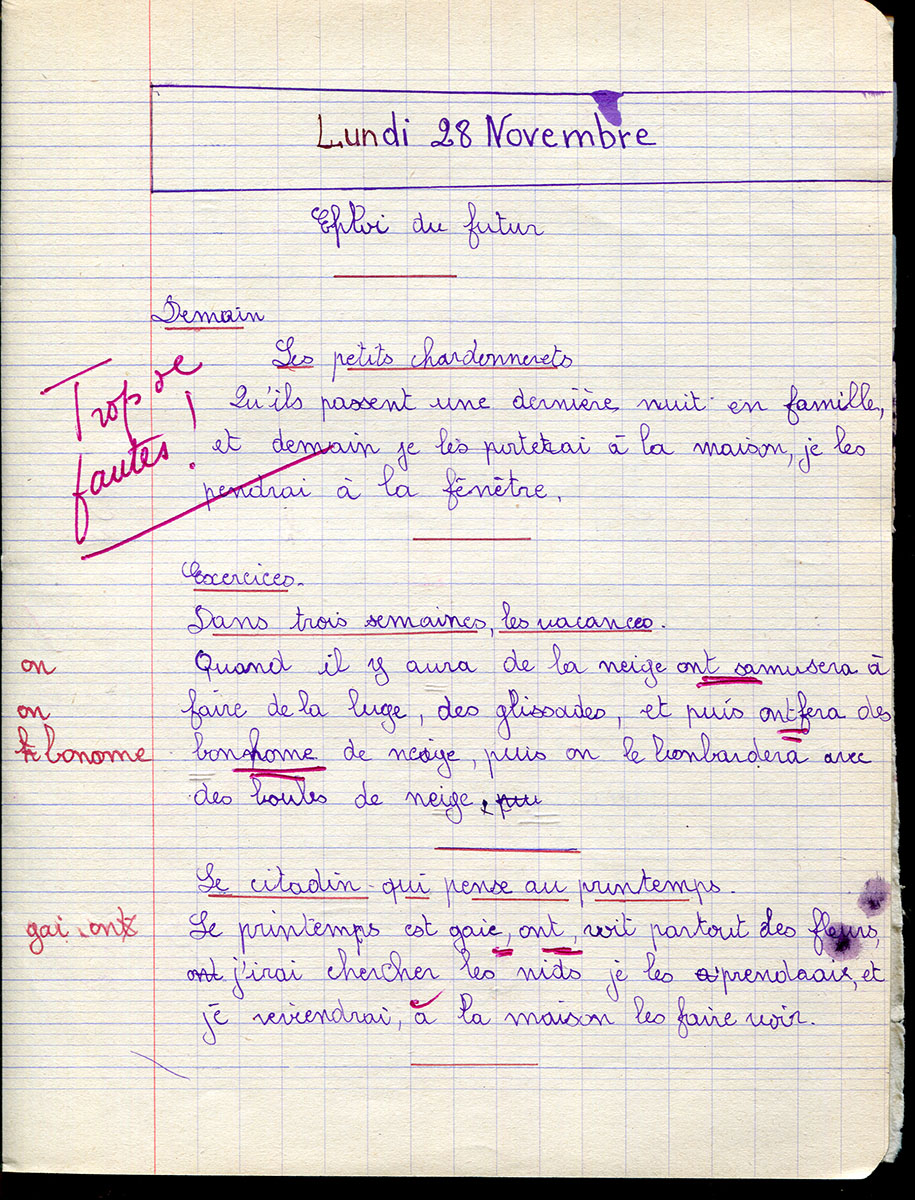 Lundi 28 Novembre
Eploi du futur
Demain
Les petits chardonnerets
Trop de
fautes !
Qu'ils passent une dernière nuit en famille,
et demain je lès porterai à la maison, je les
pendrai à la fênêtre.
Exercices.
Dans trois semaines, les vacances.
on
Quand il y aura de la neige ont samusera à
on
faire de la luge, des glissades, et puis ont fera des
bonome
bonshome de neige, puis on le bombardera avec
des boules de neige, puis
Le citadin qui pense au printemps.
gai on
Le printemps est gaie, ont, voit partout des fleurs,
ont j'irai chercher les nids je les prendrais, et
je reviendrai, à la maison les faire voir.